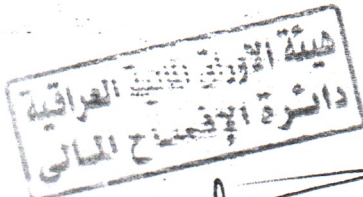 هيئة الأوراق المالية العراقية
دائرة الإفصاح المالي